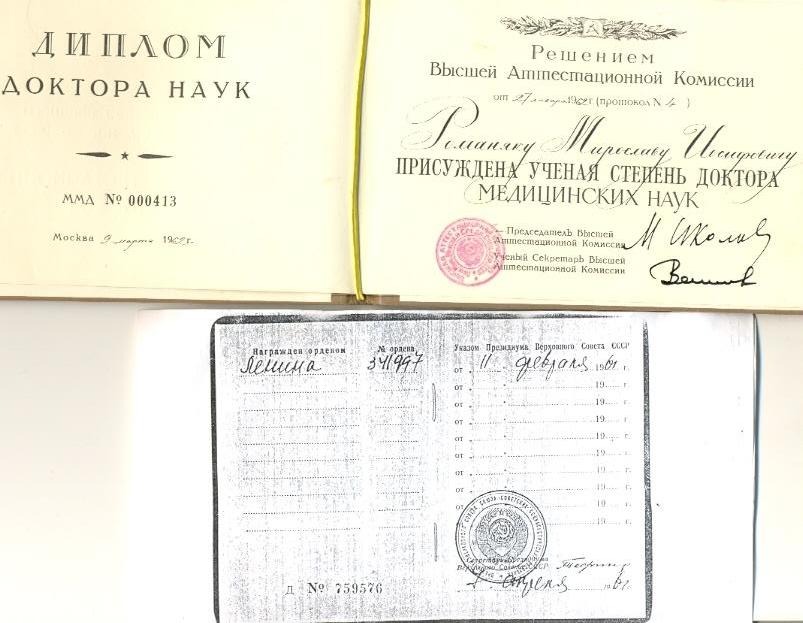 ДИПЛОМ
ДОКТОРА НАУК
ММД № 000413
Москва 9 марта 1962 г.
Решением
Высшей Аттестационной Комиссии
от 27 января 1962 г (протокол № 4 )
Романяку Мирославу Иосифовичу
ПРИСУЖДЕНА УЧЕНАЯ СТЕПЕНЬ ДОКТОРА
МЕДИЦИНСКИХ НАУК
Председатель Высшей
Аттестационной Комиссии
Ученый Секретарь Высшей
Аттестационной Комиссии
Награжден орденом № ордена
Ленина 341997
Указом Президиума Верховного Совета СССР
от " 11 " февраля 1961 г.
от " " 19 г.
от " " 19 г.
от " " 19 г.
от " " 19 г.
от " " 19 г.
от " " 19 г.
от " " 19 г.
19 г.
Секретарь Президиума
Верховного Совета СССР
апреля 1961 г.
Д № 759576